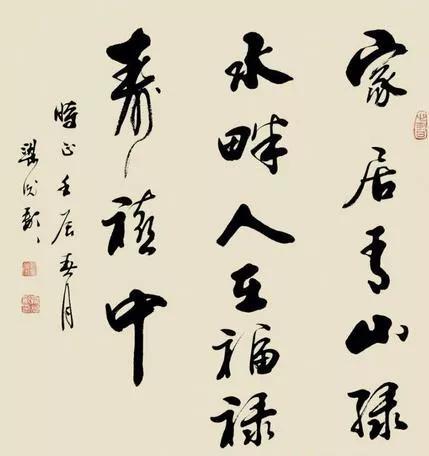 家居青山绿
水畔人在福禄
寿禧中
時正壬辰春月
梁